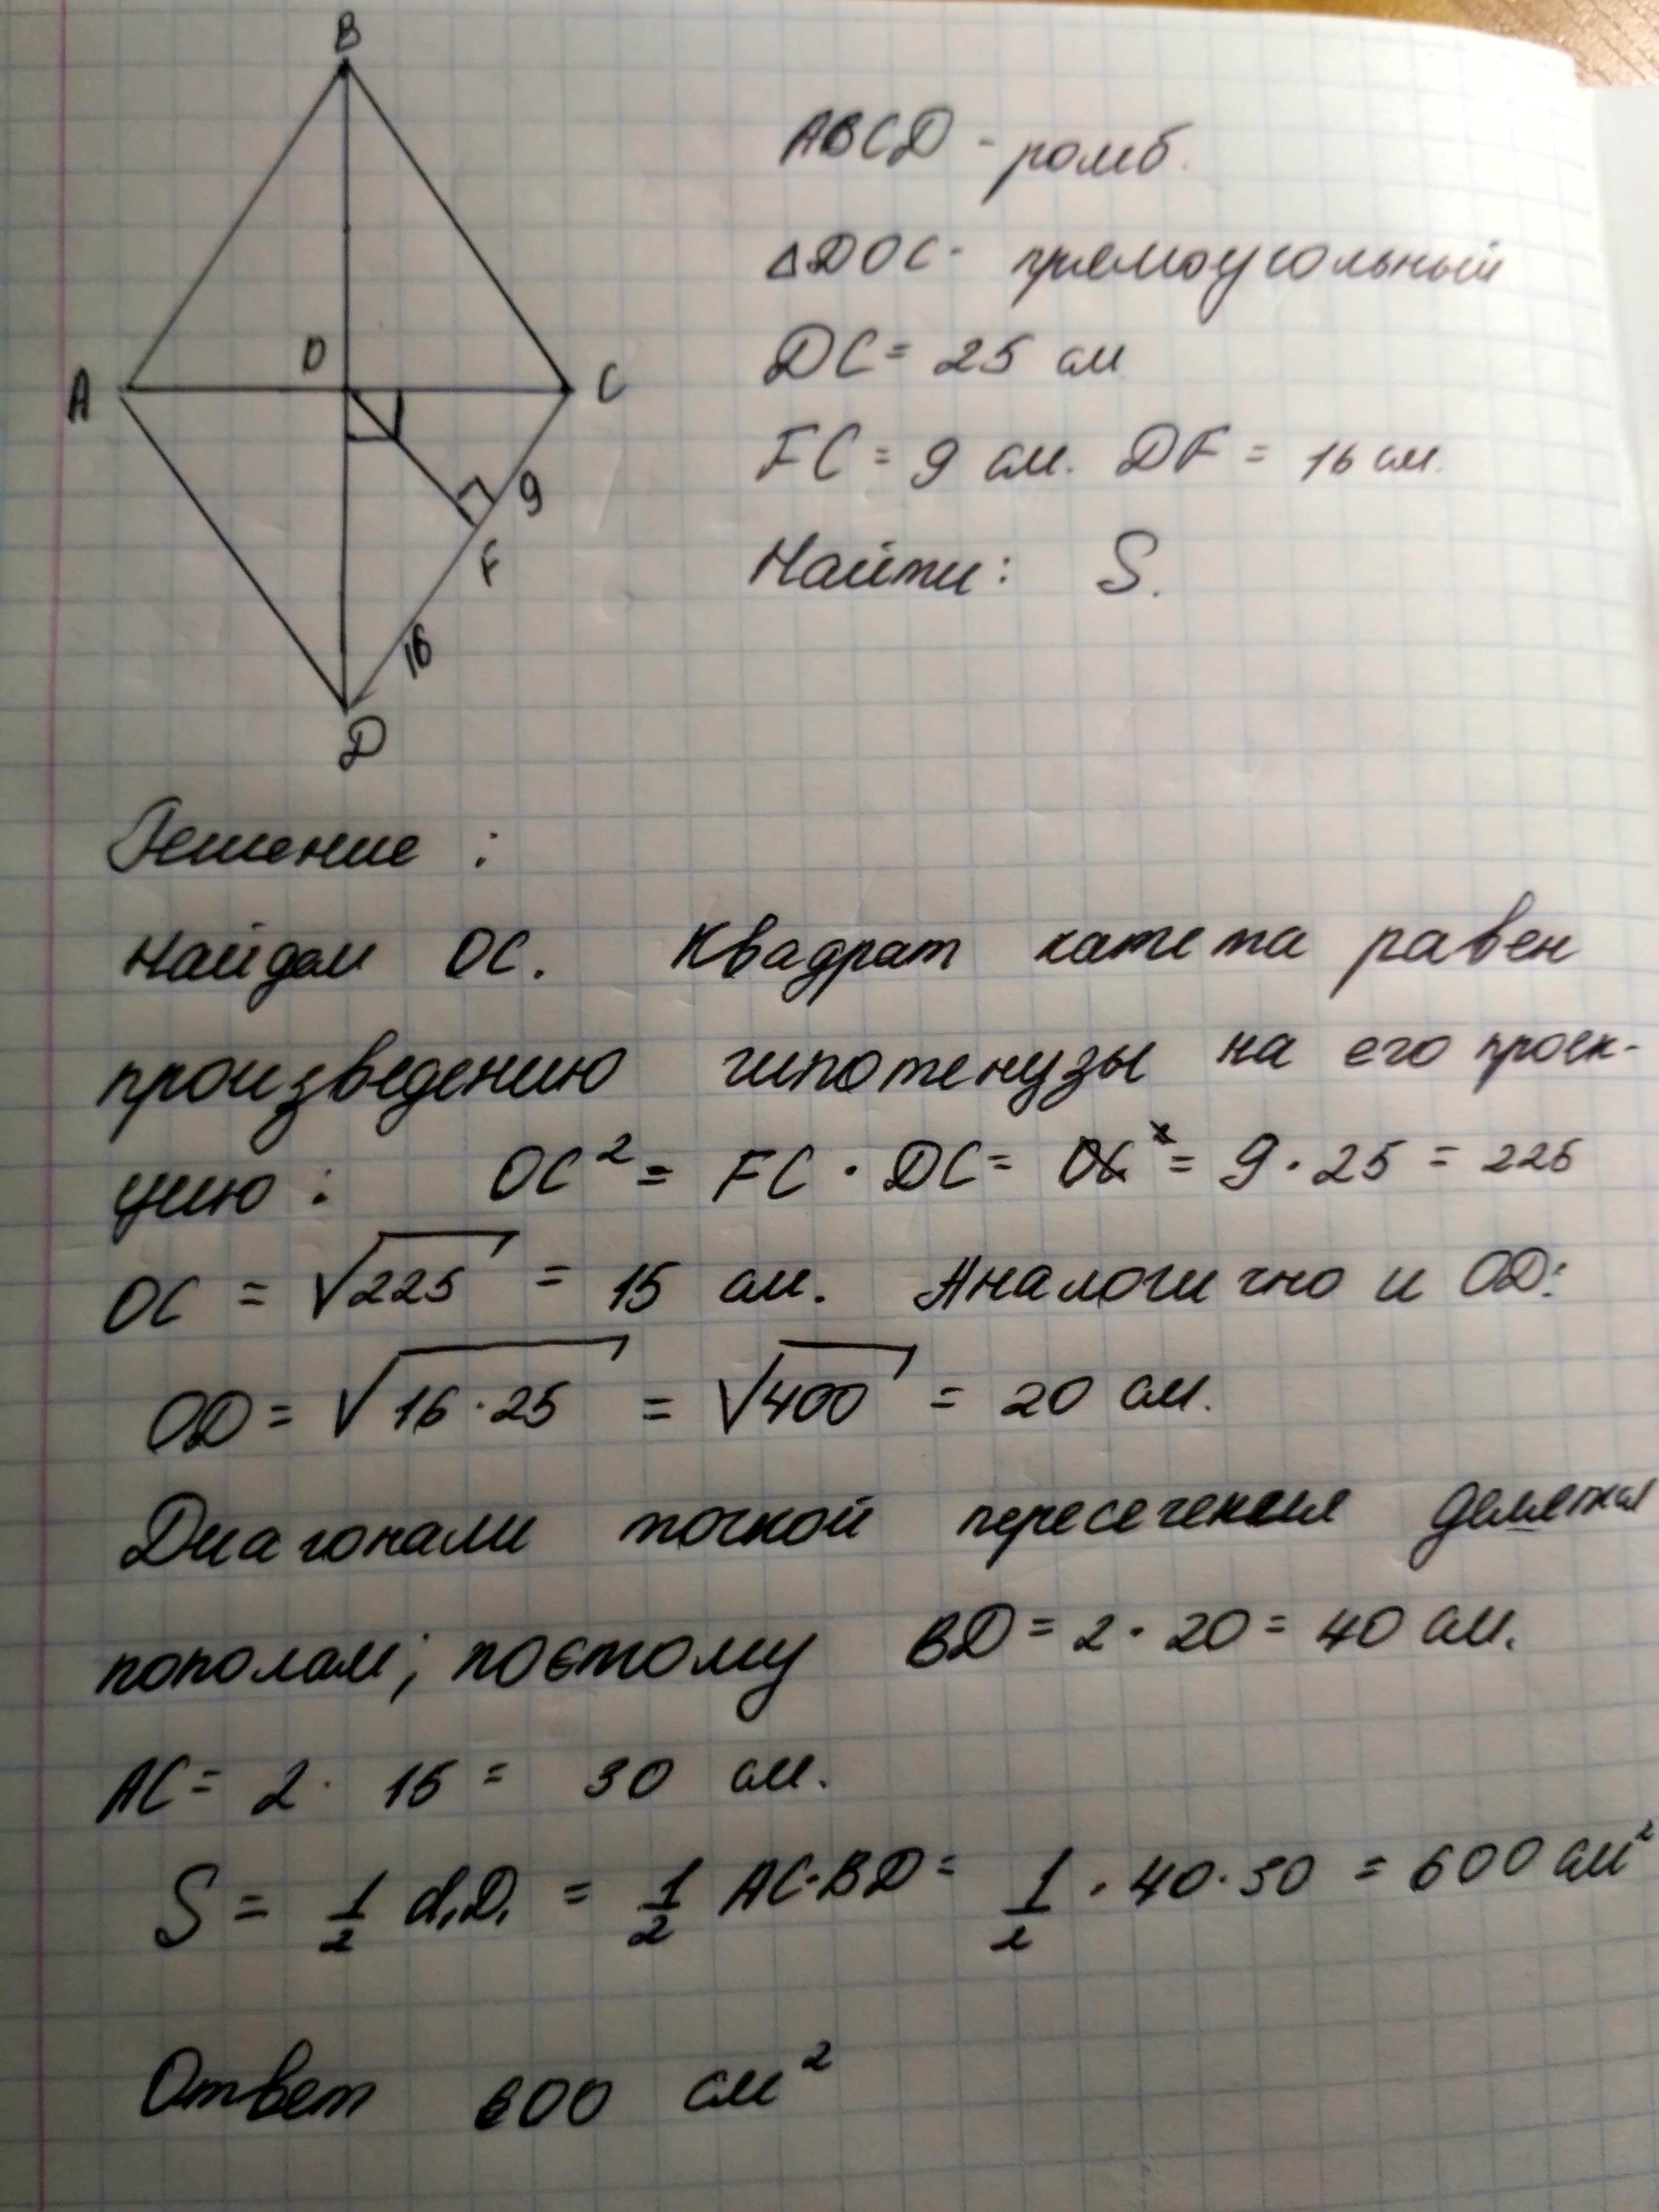 B
ABCD - ромб.
△DOC - прямоугольный
O
DC = 25 см
A
C
FC = 9 см. DF = 16 см.
9
F
Найти: S.
16
D
Решение :
Найдем OC. Квадрат катета равен
произведению гипотенузы на его проек-
цию : OC² = FC · DC = = 9 · 25 = 225
OC = √225 = 15 см. Аналогично и OD:
OD = √16·25 = √400 = 20 см.
Диагонали точкой пересечения делятся
пополам; поєтому BD = 2 · 20 = 40 см.
AC = 2 · 15 = 30 см.
S = 1/2 d₁D₁ = 1/2 AC·BD = 1/2 · 40·30 = 600 см²
Ответ 600 см²